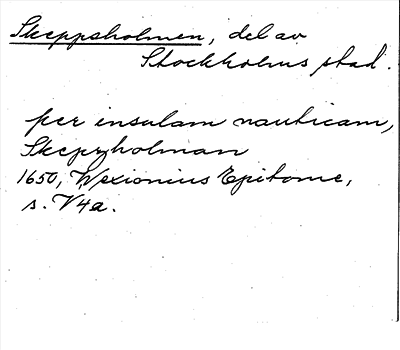 Skeppsholmen, del av
Stockholms stad.
per insulam nauticam,
Skepzholman
1650, Wexionius Epitome,
s. V4a.